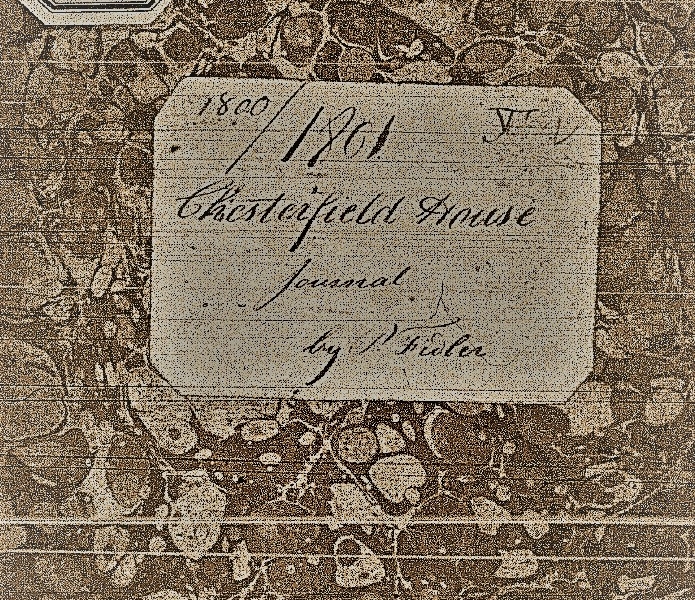 1800/1801
Chesterfield House
Journal
by P Fidler